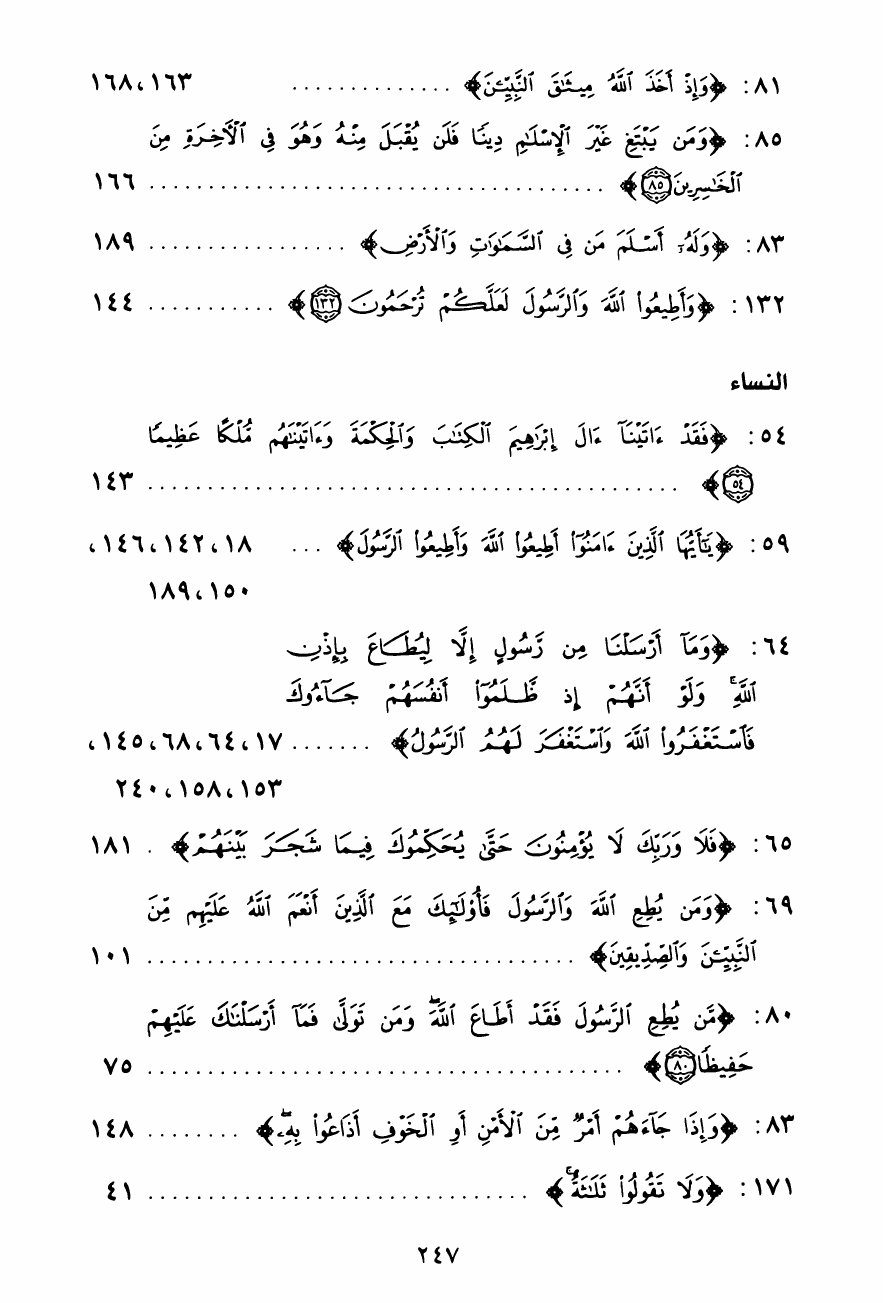 ٨١: ﴿وَإِذْ أَخَذَ ٱللَّهُ مِيثَٰقَ ٱلنَّبِيِّـۧنَ﴾ .............. ١٦٣، ١٦٨
٨٥: ﴿وَمَن يَبْتَغِ غَيْرَ ٱلْإِسْلَٰمِ دِينًا فَلَن يُقْبَلَ مِنْهُ وَهُوَ فِى ٱلْأَخِرَةِ مِنَ
ٱلْخَٰسِرِينَ ۝٨٥﴾ ...................................... ١٦٦
٨٣: ﴿وَلَهُۥٓ أَسْلَمَ مَن فِى ٱلسَّمَٰوَٰتِ وَٱلْأَرْضِ﴾ ................. ١٨٩
١٣٢: ﴿وَأَطِيعُوا۟ ٱللَّهَ وَٱلرَّسُولَ لَعَلَّكُمْ تُرْحَمُونَ ۝١٣٢﴾ ........... ١٤٤
النساء
٥٤: ﴿فَقَدْ ءَاتَيْنَآ ءَالَ إِبْرَٰهِيمَ ٱلْكِتَٰبَ وَٱلْحِكْمَةَ وَءَاتَيْنَٰهُم مُّلْكًا عَظِيمًا
۝٥٤﴾ ............................................. ١٤٣
٥٩: ﴿يَٰٓأَيُّهَا ٱلَّذِينَ ءَامَنُوٓا۟ أَطِيعُوا۟ ٱللَّهَ وَأَطِيعُوا۟ ٱلرَّسُولَ﴾ ... ١٨، ١٤٢، ١٤٦،
١٥٠، ١٨٩
٦٤: ﴿وَمَآ أَرْسَلْنَا مِن رَّسُولٍ إِلَّا لِيُطَاعَ بِإِذْنِ
ٱللَّهِ ۚ وَلَوْ أَنَّهُمْ إِذ ظَّلَمُوٓا۟ أَنفُسَهُمْ جَآءُوكَ
فَٱسْتَغْفَرُوا۟ ٱللَّهَ وَٱسْتَغْفَرَ لَهُمُ ٱلرَّسُولُ﴾ ....... ١٧، ٦٤، ٦٨، ١٤٥،
١٥٣، ١٥٨، ٢٤٠
٦٥: ﴿فَلَا وَرَبِّكَ لَا يُؤْمِنُونَ حَتَّىٰ يُحَكِّمُوكَ فِيمَا شَجَرَ بَيْنَهُمْ﴾ . ١٨١
٦٩: ﴿وَمَن يُطِعِ ٱللَّهَ وَٱلرَّسُولَ فَأُو۟لَٰٓئِكَ مَعَ ٱلَّذِينَ أَنْعَمَ ٱللَّهُ عَلَيْهِم مِّنَ
ٱلنَّبِيِّـۧنَ وَٱلصِّدِّيقِينَ﴾ .................................... ١٠١
٨٠: ﴿مَّن يُطِعِ ٱلرَّسُولَ فَقَدْ أَطَاعَ ٱللَّهَ ۖ وَمَن تَوَلَّىٰ فَمَآ أَرْسَلْنَٰكَ عَلَيْهِمْ
حَفِيظًا ۝٨٠﴾ ........................................ ٧٥
٨٣: ﴿وَإِذَا جَآءَهُمْ أَمْرٌ مِّنَ ٱلْأَمْنِ أَوِ ٱلْخَوْفِ أَذَاعُوا۟ بِهِۦ ۖ﴾ ........ ١٤٨
١٧١: ﴿وَلَا تَقُولُوا۟ ثَلَٰثَةٌ ۚ﴾ ................................ ٤١
٢٤٧